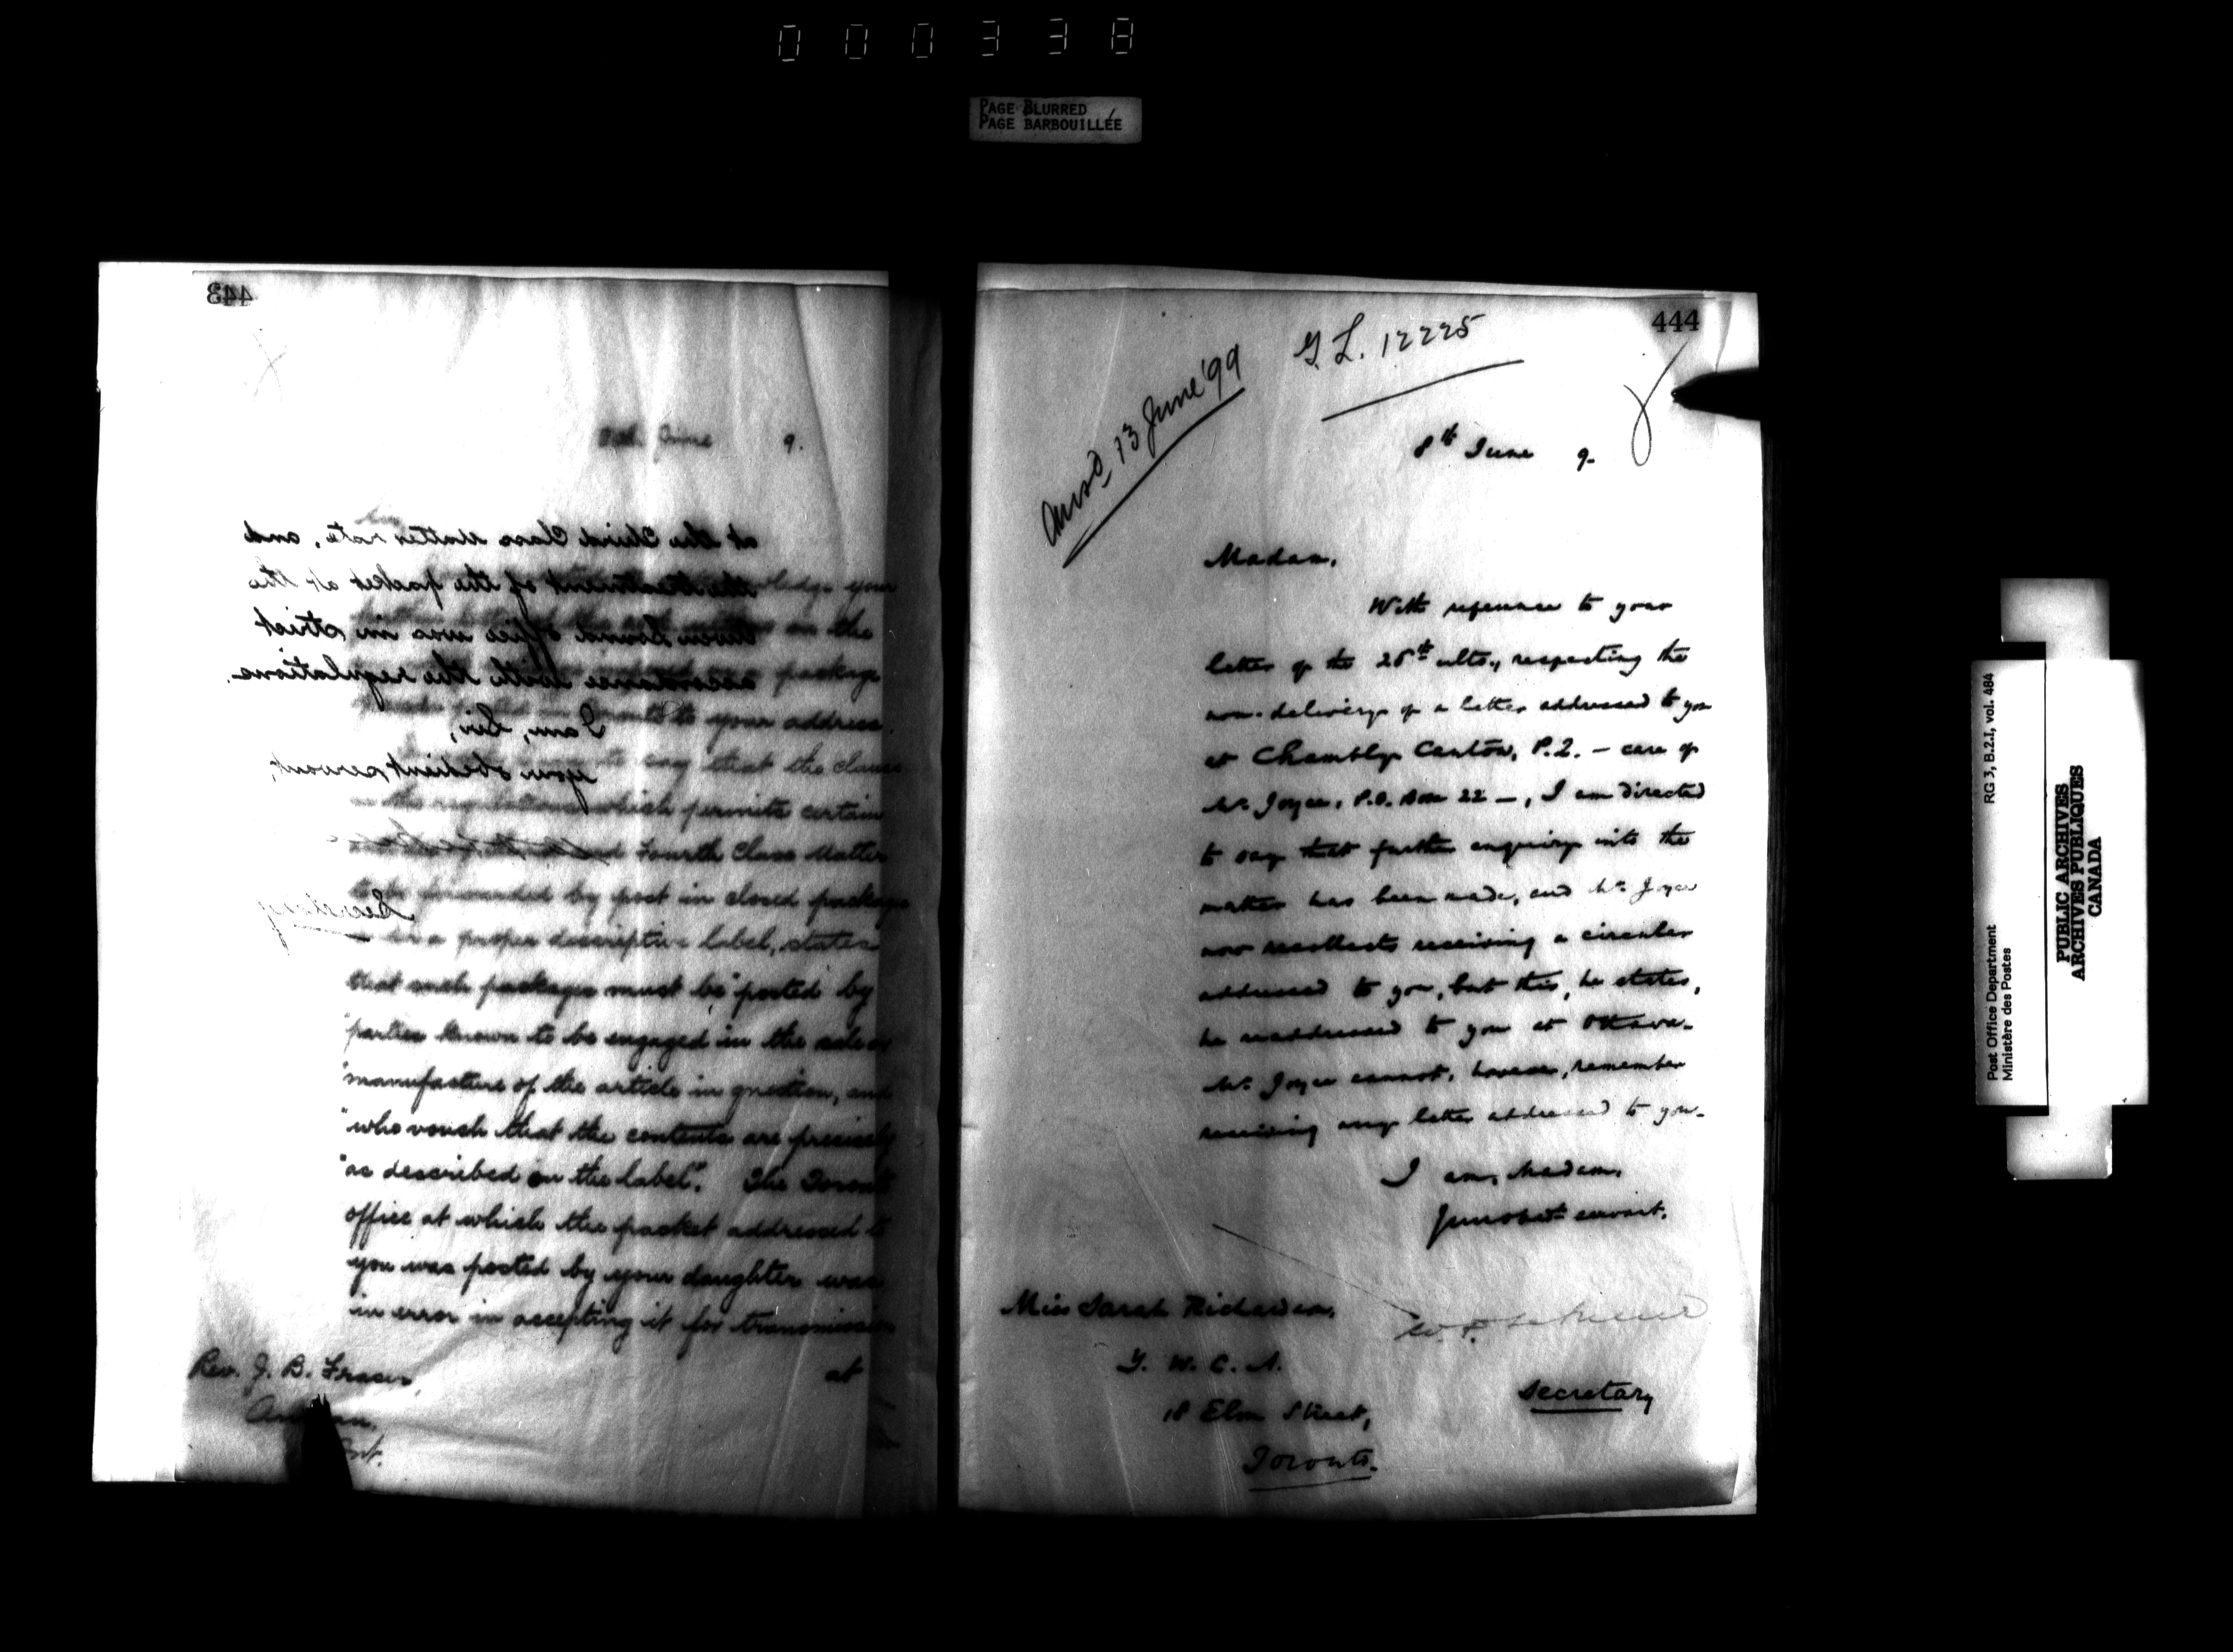 000338
PAGE BLURRED
PAGE BARBOUILLÉE
443
June 9.
at the Third Class Matter rate, and
the treatment of the packet at the
Owen Sound office was in strict
accordance with the regulations.
I am, Sir,
your obedient servant,
Secretary
your
on the
package
to your address
to say that the clause
in the regulations which permits certain
Fourth Class Matter
to be forwarded by post in closed packages
a proper descriptive label, states
that such packages must be "posted by
"parties known to be engaged in the sale or
"manufacture of the article in question, and
"who vouch that the contents are precisely
"as described on the label". The Toronto
office at which the packet addressed to
you was posted by your daughter was
in error in accepting it for transmission
at
Rev. J. B. Fraser,
Ont.
444
G.L. 12225
Ansd. 13 June '99
8th June 9.
Madam,
With reference to your
letter of the 25th ulto., respecting the
non-delivery of a letter addressed to you
at Chambly Canton, P.Q. — care of
Mr. Joyce, P.O. Box 22 —, I am directed
to say that further enquiry into the
matter has been made, and Mr. Joyce
now recollects receiving a circular
addressed to you, but this, he states,
he readdressed to you at Ottawa.
Mr. Joyce cannot, however, remember
receiving any letter addressed to you.
I am, Madam,
Your obedt. servant,
Miss Sarah Richardson,
Y. W. C. A.
18 Elm Street,
Toronto.
Secretary
RG 3, B.2.I, vol. 484
Post Office Department
Ministère des Postes
PUBLIC ARCHIVES
ARCHIVES PUBLIQUES
CANADA